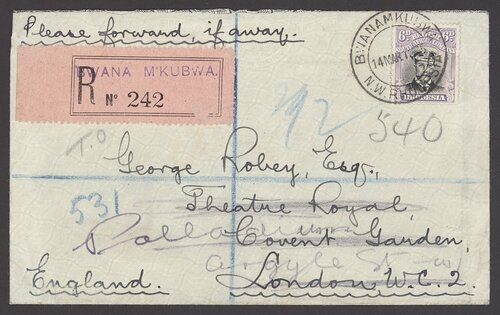 Please forward, if away.
BWANA M'KUBWA.
R No 242
BWANAMKUBWA
14 MAR
N.W. RHODESIA
6D 6D
RHODESIA
540
T.O
George Robey, Esq.,
531
Theatre Royal,
Covent Garden,
Argyle St W
England.
London, W.C.2.